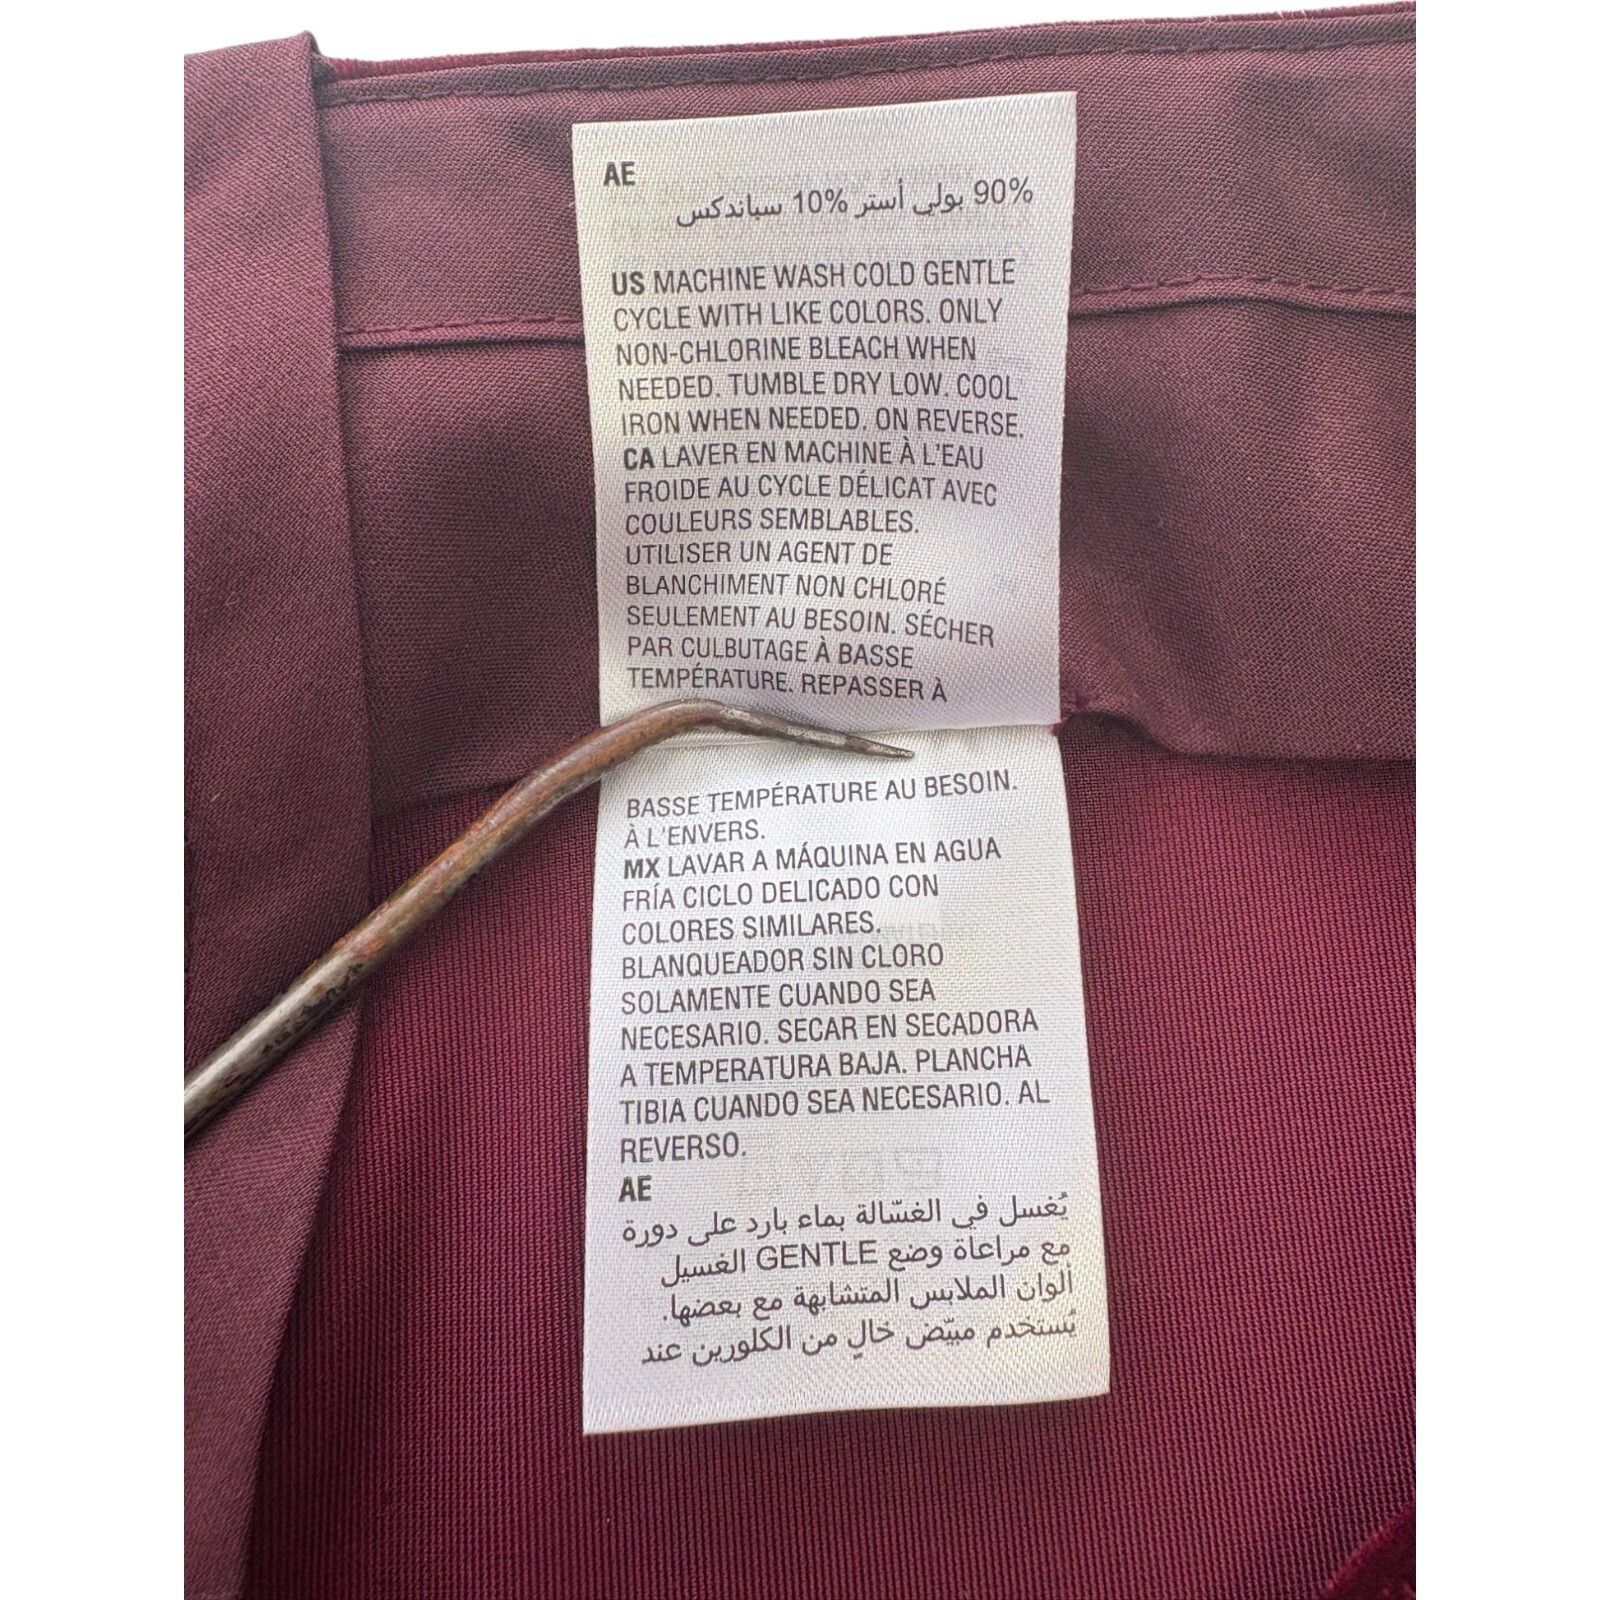 AE
90% بولي أستر 10% سباندكس
US MACHINE WASH COLD GENTLE
CYCLE WITH LIKE COLORS. ONLY
NON-CHLORINE BLEACH WHEN
NEEDED. TUMBLE DRY LOW. COOL
IRON WHEN NEEDED. ON REVERSE.
CA LAVER EN MACHINE À L'EAU
FROIDE AU CYCLE DÉLICAT AVEC
COULEURS SEMBLABLES.
UTILISER UN AGENT DE
BLANCHIMENT NON CHLORÉ
SEULEMENT AU BESOIN. SÉCHER
PAR CULBUTAGE À BASSE
TEMPÉRATURE. REPASSER À
BASSE TEMPÉRATURE AU BESOIN.
À L'ENVERS.
MX LAVAR A MÁQUINA EN AGUA
FRÍA CICLO DELICADO CON
COLORES SIMILARES.
BLANQUEADOR SIN CLORO
SOLAMENTE CUANDO SEA
NECESARIO. SECAR EN SECADORA
A TEMPERATURA BAJA. PLANCHA
TIBIA CUANDO SEA NECESARIO. AL
REVERSO.
AE
يُغسل في الغسّالة بماء بارد على دورة
مع مراعاة وضع GENTLE الغسيل
ألوان الملابس المتشابهة مع بعضها.
يُستخدم مبيّض خالٍ من الكلورين عند